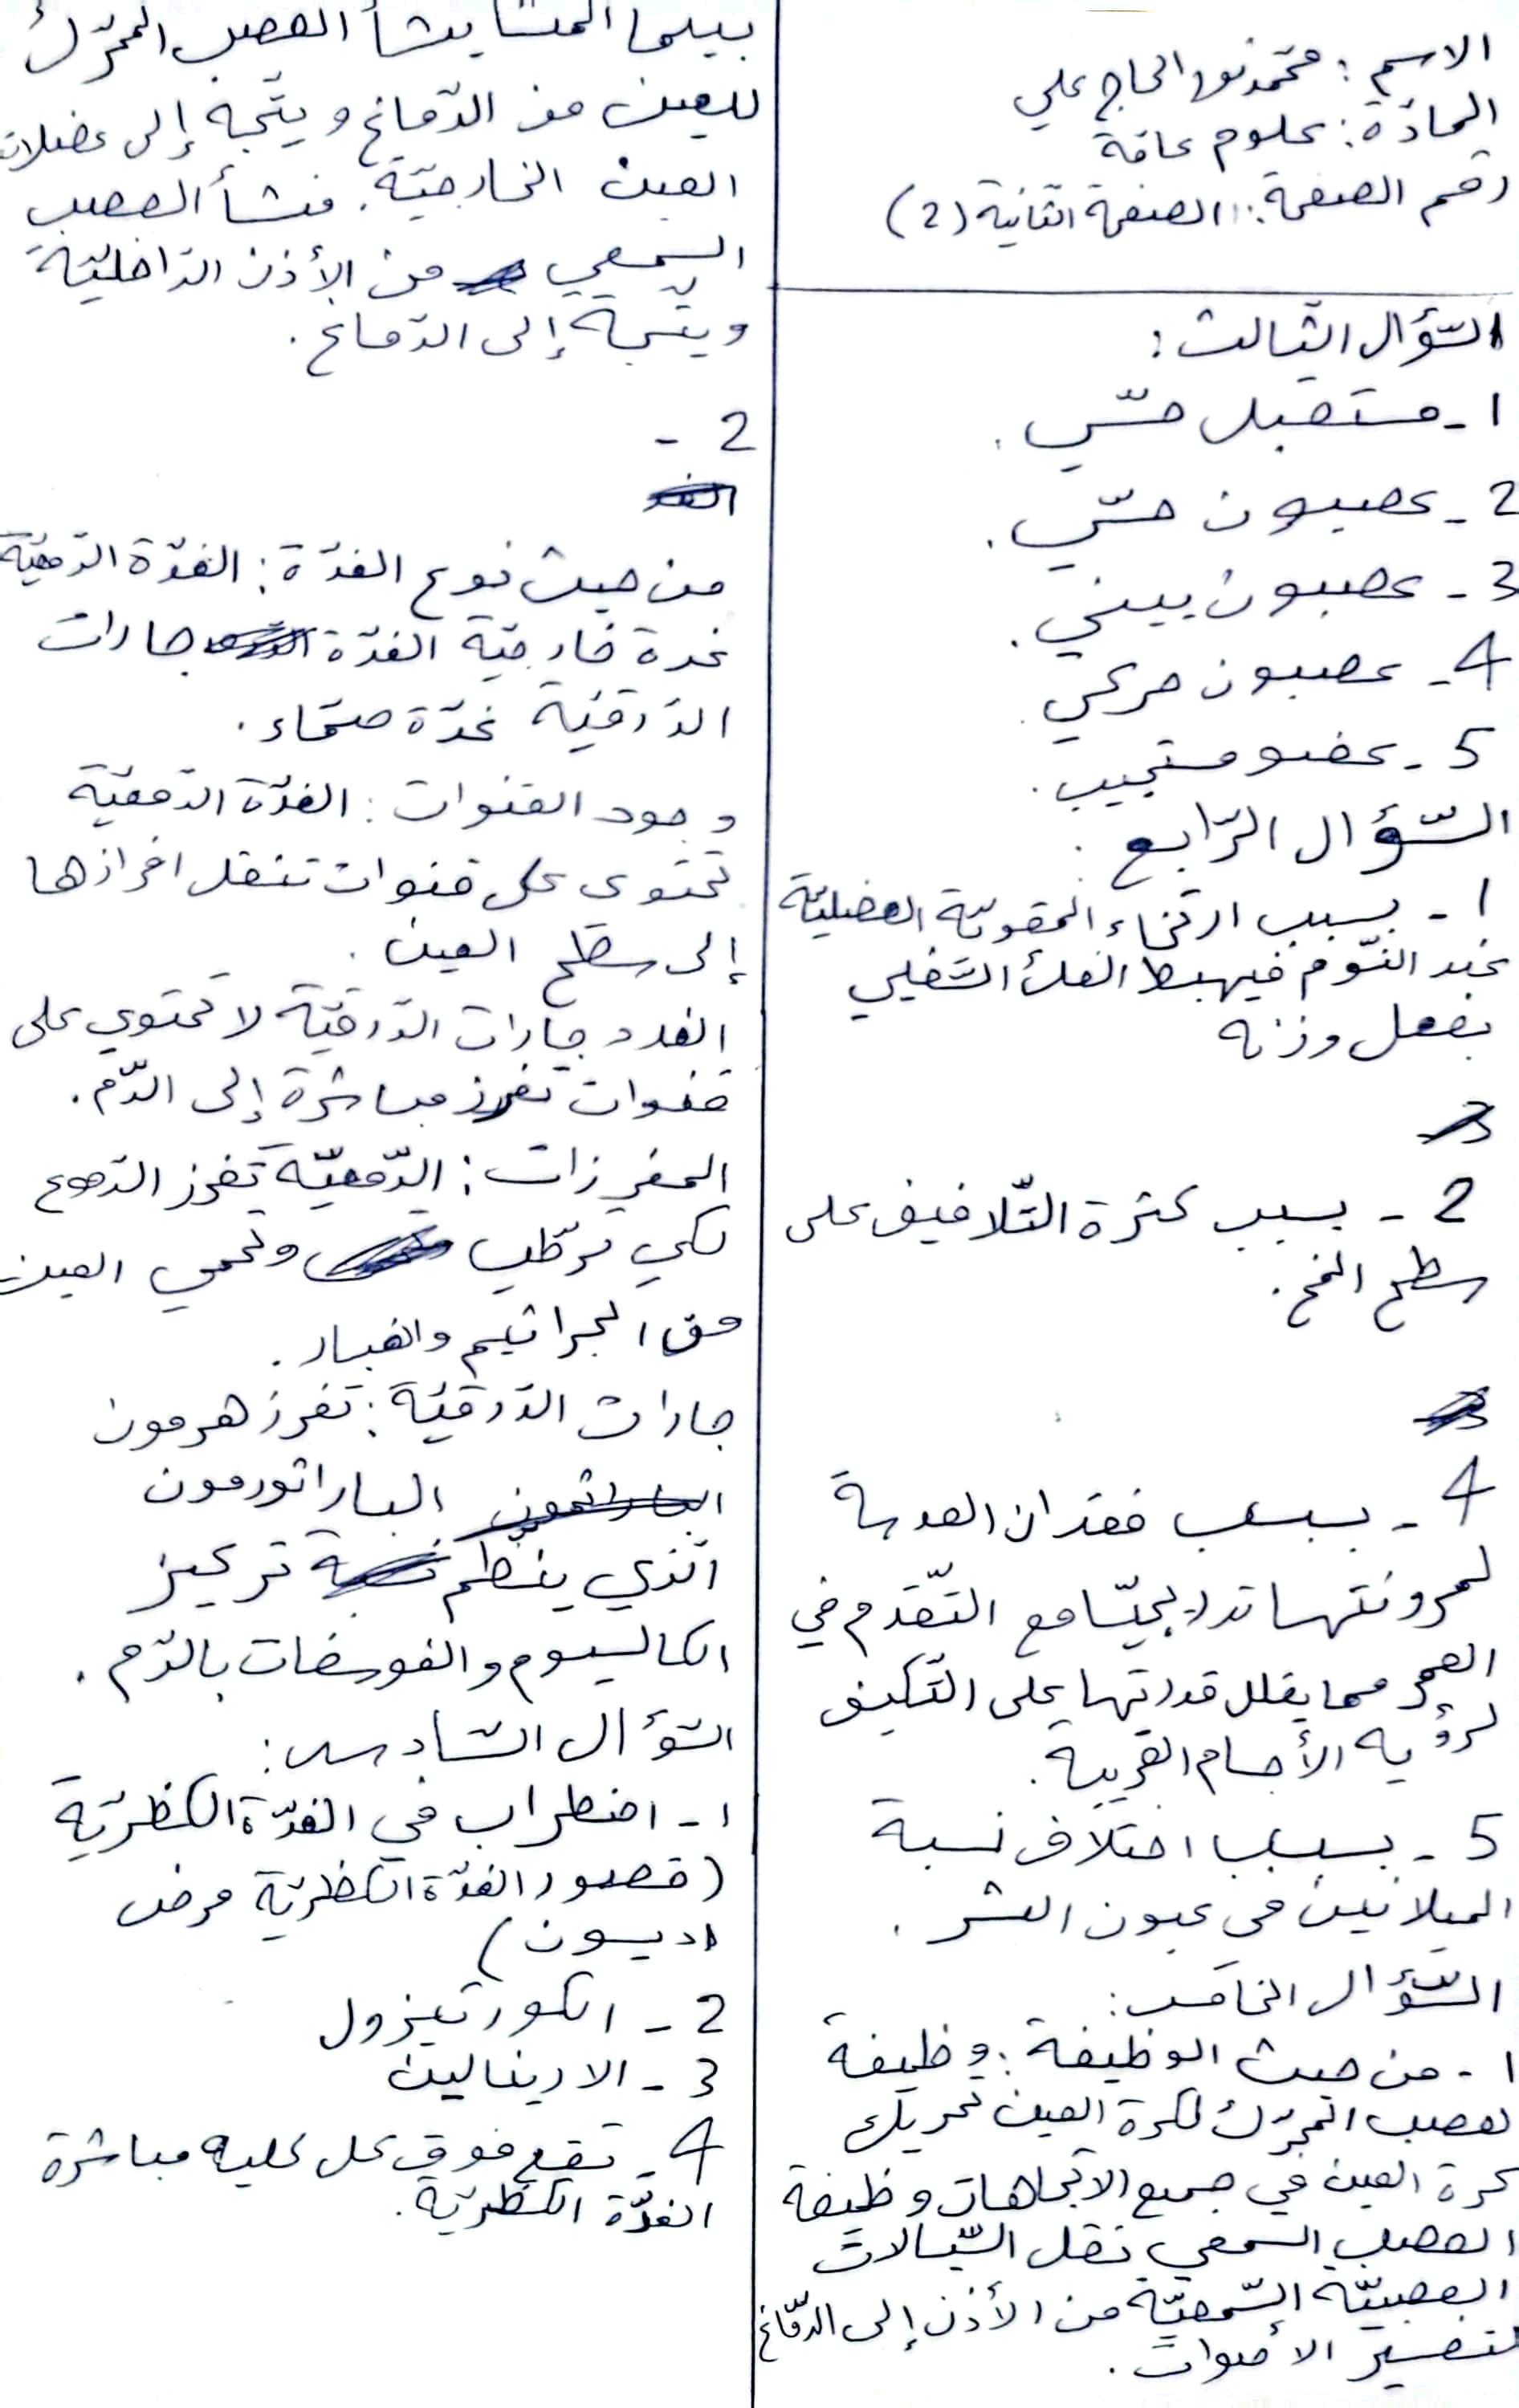 الاسم : محمد نور الحاج علي
المادّة : علوم عامة
رقم الصفحة : الصفحة الثانية (2)
السّؤال الثالث :
1 - مستقبل حسّي .
2 - عصبون حسّي .
3 - عصبون بيني .
4 - عصبون حركي .
5 - عضو مستجيب .
السّؤال الرّابع :
1 - بسبب ارتخاء المقويّة العضليّة
عند النّوم فيهبط الفك السّفلي
بفعل وزنه
2 - بسبب كثرة التّلافيف على
سطح المخ .
4 - بسبب فقدان العدسة
لمرونتها تدريجيّا مع التّقدم في
العمر مما يقلل قدرتها على التّكيف
لرؤية الأجسام القريبة .
5 - بسبب اختلاف نسبة
الميلانين في عيون البشر .
السّؤال الخامس :
1 - من حيث الوظيفة : وظيفة
لعصب المحرّك لكرة العين تحريك
كرة العين في جميع الاتجاهات وظيفة
العصب السمعي نقل السّيالات
العصبيّة السّمعيّة من الأذن إلى الدّماغ
لتفسير الأصوات .
بينما المنشأ ينشأ العصب المحرّك
للعين من الدّماغ ويتّجه إلى عضلات
العين الخارجيّة . منشأ العصب
السمعي من الأذن الدّاخليّة
ويتّجه إلى الدّماغ .
2 -
من حيث نوع الغدّة : الغدّة الدّمعيّة
غدة خارجيّة الغدّة جارات
الدّرقيّة غدّة صمّاء .
وجود القنوات : الغدّة الدّمعيّة
تحتوي على قنوات تنقل افرازها
إلى سطح العين .
الغدد جارات الدّرقيّة لا تحتوي على
قنوات تفرز مباشرة إلى الدّم .
المفرزات : الدّمعيّة تفرز الدّموع
لكي ترطّب وتحمي العين
من الجراثيم والغبار .
جارات الدّرقيّة : تفرز هرمون
الباراثورمون
الّذي ينظّم تركيز
الكالسيوم والفوسفات بالدّم .
السّؤال السّادس :
1 - اضطراب في الغدّة الكظريّة
(قصور الغدّة الكظريّة مرض
اديسون)
2 - الكورتيزول
3 - الادرينالين
4 - تقع فوق كل كلية مباشرة
الغدّة الكظريّة .